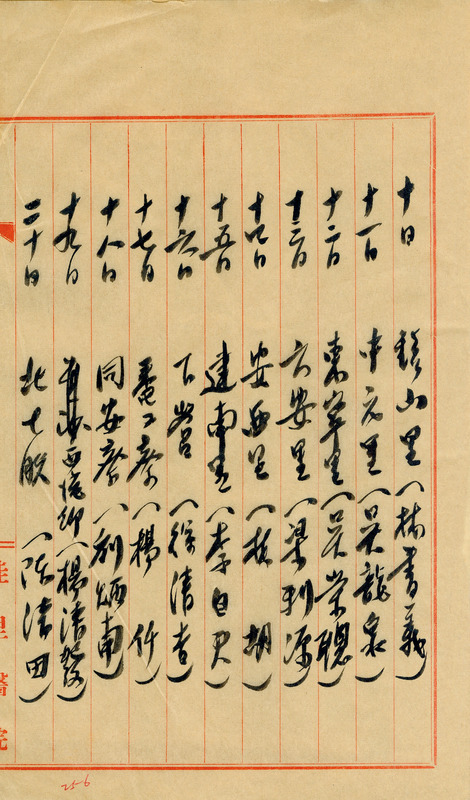 十日 鎮山里（林書義）
十一日 中元里（吳龍泉）
十二日 東寧里（吳榮聰）
十三日 六安里（梁利源）
十四日 安西里（林 胡）
十五日 建南里（李自民）
十六日 下營（徐清吉）
十七日 番子寮（楊 仟）
十八日 同安寮（劉炳南）
十九日 西（楊清發）
二十日 北七股（陳清田）
佳里醫院
25-6